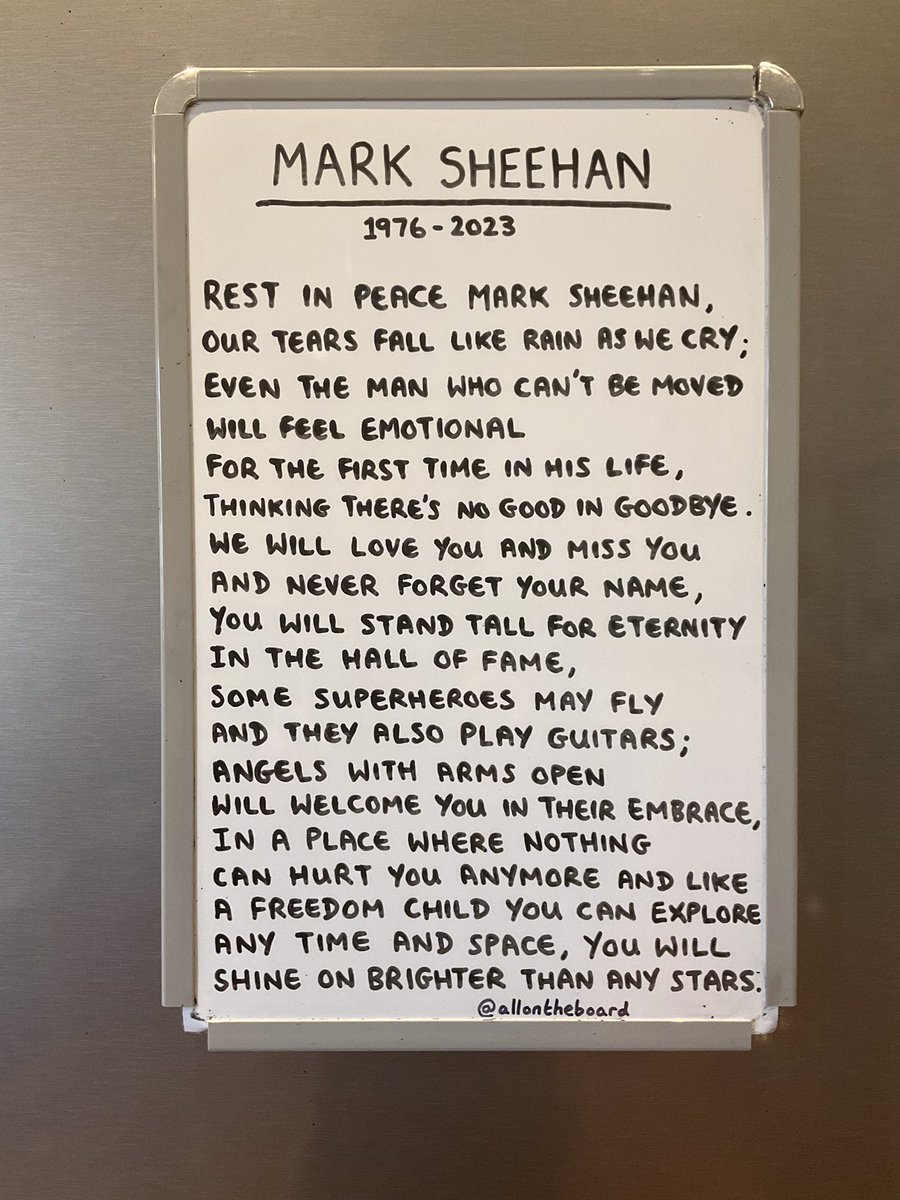 MARK SHEEHAN
1976-2023
REST IN PEACE MARK SHEEHAN,
OUR TEARS FALL LIKE RAIN AS WE CRY;
EVEN THE MAN WHO CAN'T BE MOVED
WILL FEEL EMOTIONAL
FOR THE FIRST TIME IN HIS LIFE,
THINKING THERE'S NO GOOD IN GOODBYE.
WE WILL LOVE YOU AND MISS YOU
AND NEVER FORGET YOUR NAME,
YOU WILL STAND TALL FOR ETERNITY
IN THE HALL OF FAME,
SOME SUPERHEROES MAY FLY
AND THEY ALSO PLAY GUITARS;
ANGELS WITH ARMS OPEN
WILL WELCOME YOU IN THEIR EMBRACE,
IN A PLACE WHERE NOTHING
CAN HURT YOU ANYMORE AND LIKE
A FREEDOM CHILD YOU CAN EXPLORE
ANY TIME AND SPACE, YOU WILL
SHINE ON BRIGHTER THAN ANY STARS.
@allontheboard